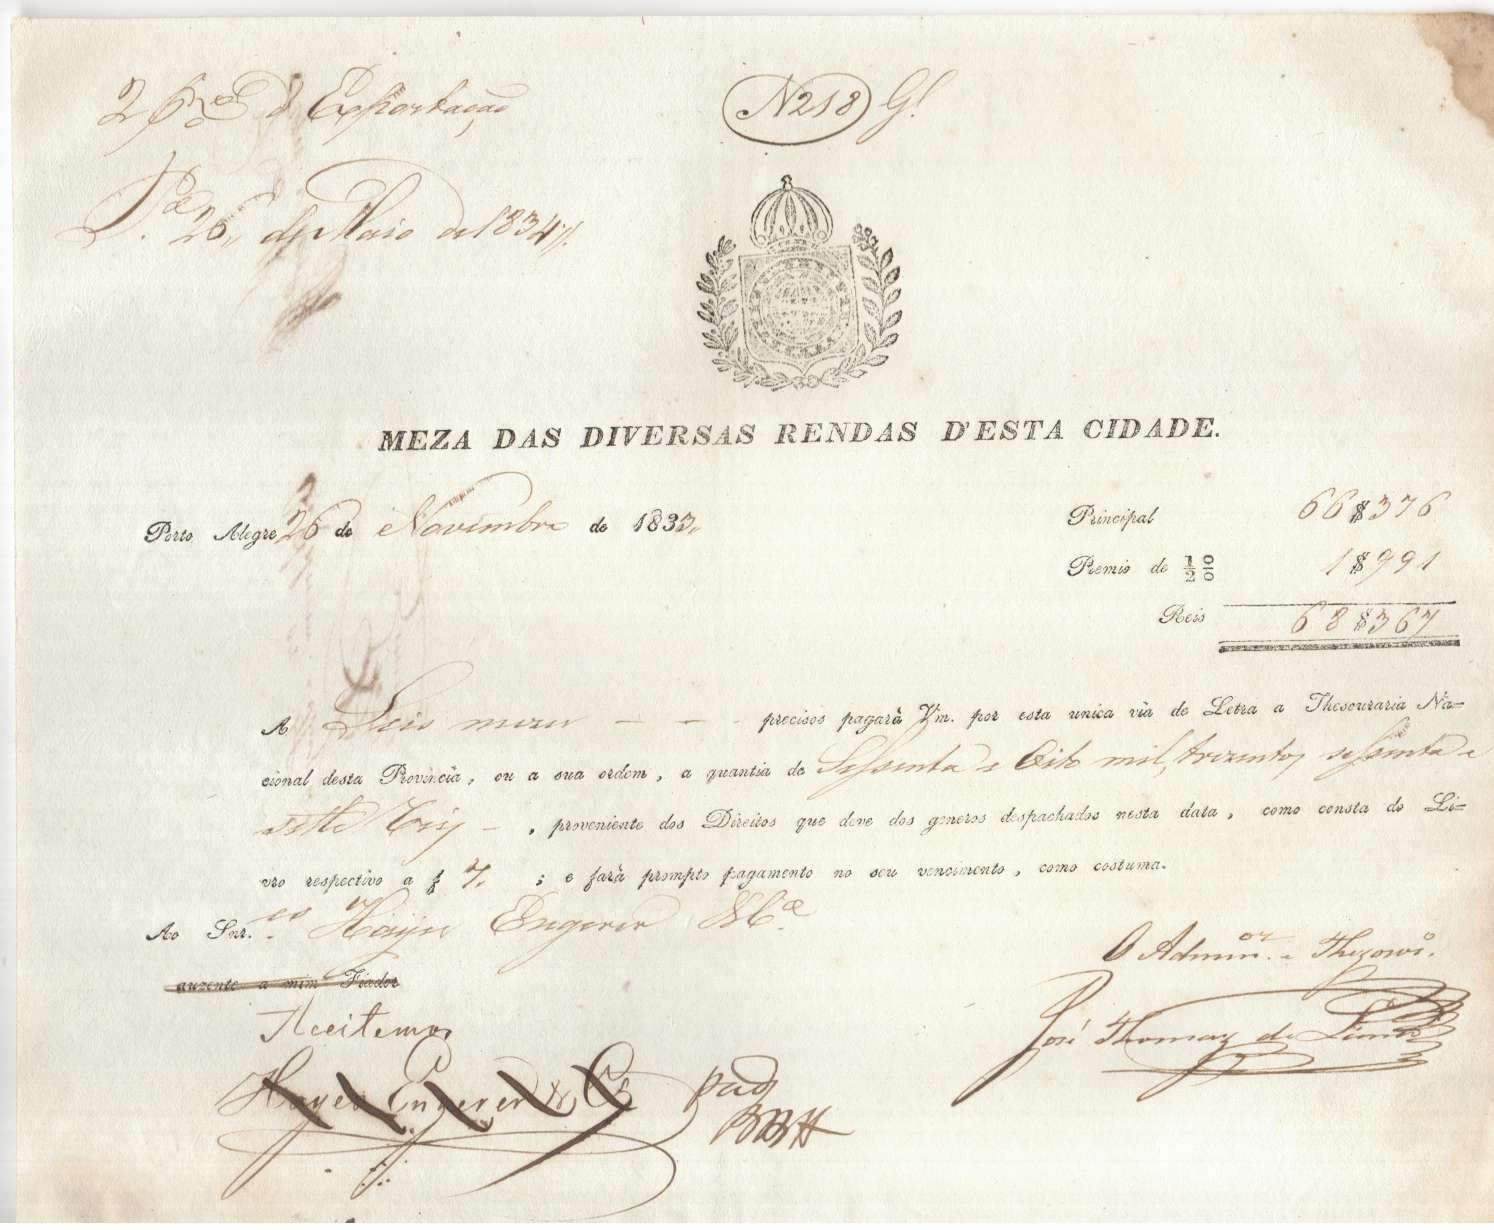 N 218 Gl
de Exportação
26 de Maio de 1834
MEZA DAS DIVERSAS RENDAS D'ESTA CIDADE.
Porto Alegre 26 de Novembro de 1833
Principal 66$376
Premio de 1/2 0/0 1$991
Reis 68$367
A Seis mezes precisos pagará Vm. por esta unica via de Letra a Thesouraria Na-
cional desta Provincia, ou a sua ordem, a quantia de Sessenta e Oito mil, trezentos, sessenta e
sette Reis, proveniente dos Direitos que deve dos generos despachados nesta data, como consta do Li-
vro respectivo a f 7 ; e fará prompto pagamento no seu vencimento, como costuma.
Ao Snr.es Hayes Engerer & Ca.
auzente a mim Fiador
O Admin.or e Thezour.o
Aceitamos
José Thomaz de Lima
Hayes Engerer & Co